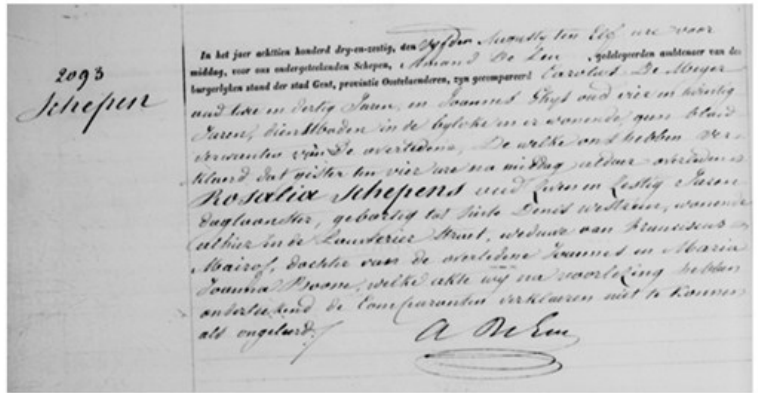 2093
Schepen
In het jaer achttien honderd dry-en-zestig, den vyfden Augusty ten Elf ure voor
middag, voor ons ondergeteekenden Schepen, Amand De Leu, gedelegeerden ambtenaer van den
burgerlyken stand der stad Gent, provintie Oostvlaenderen, zyn gecompareerd Carolus De Meyer
oud twee en dertig Jaren, en Joannes Ghys oud vier en twintig
Jaren, dienstboden in de byloke en er wonende, geen bloed
verwanten van de overledene, De welke ons hebben ver-
klaerd dat gister ten vier ure na middag aldaer overleden is
Rosalia Schepens oud en Zestig Jaren
dagloonster, geboortig tot Sinte Denis Westrem, wonende
alhier in de Straet, weduwe van Franciscus
dochter van de overledene Joannes en Maria
Joanna Boom, welke akte wy na voorlezing hebben
onderteekend de Comparanten verklaeren niet te konnen
als ongeleerd.
A De Leu